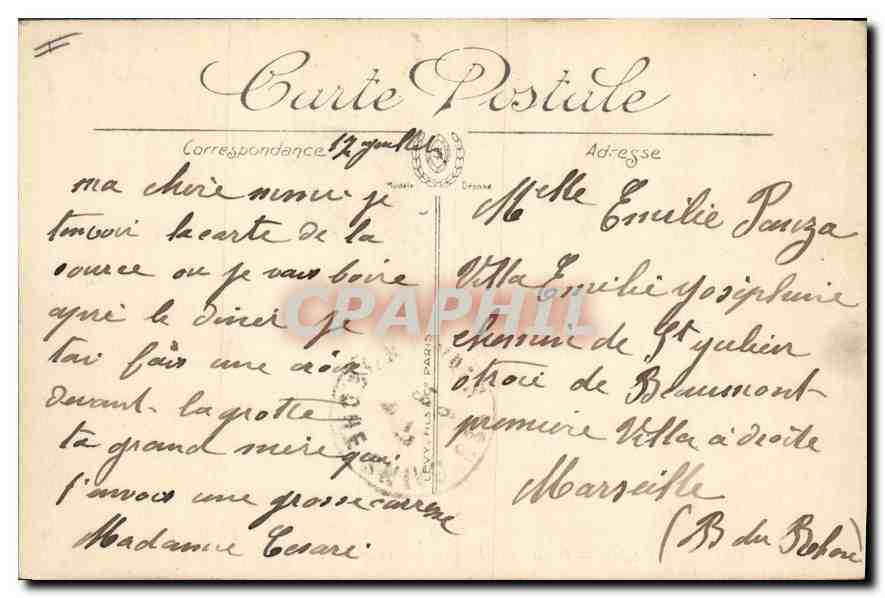 Carte Postale
Correspondance 17 juillet
Modèle Déposé
Adresse
ma chère mimie je
tenvoir la carte de la
source ou je vais boire
aprè le diner je
tai fais une croix
devant la grotte
ta grand mère qui
t'envois une grosse caresse
Madame Cesari
Melle Emilie Panza
Villa Emilie Josephine
chemin de St julien
otroi de Beaumont
première Villa a droite
Marseille
(B du Rhone
LEVY, FILS & Cie PARIS
CPAPHIL